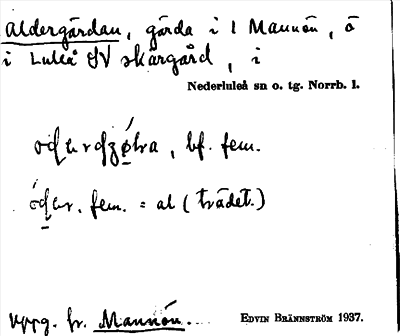 Aldergärdan, gärda i l Mannön, ö
i Luleå SV skärgård, i
Nederluleå sn o. tg. Norrb. l.
, bf. fem.
fem. = al (trädet.)
Uppg. fr. Mannön. EDVIN BRÄNNSTRÖM 1937.